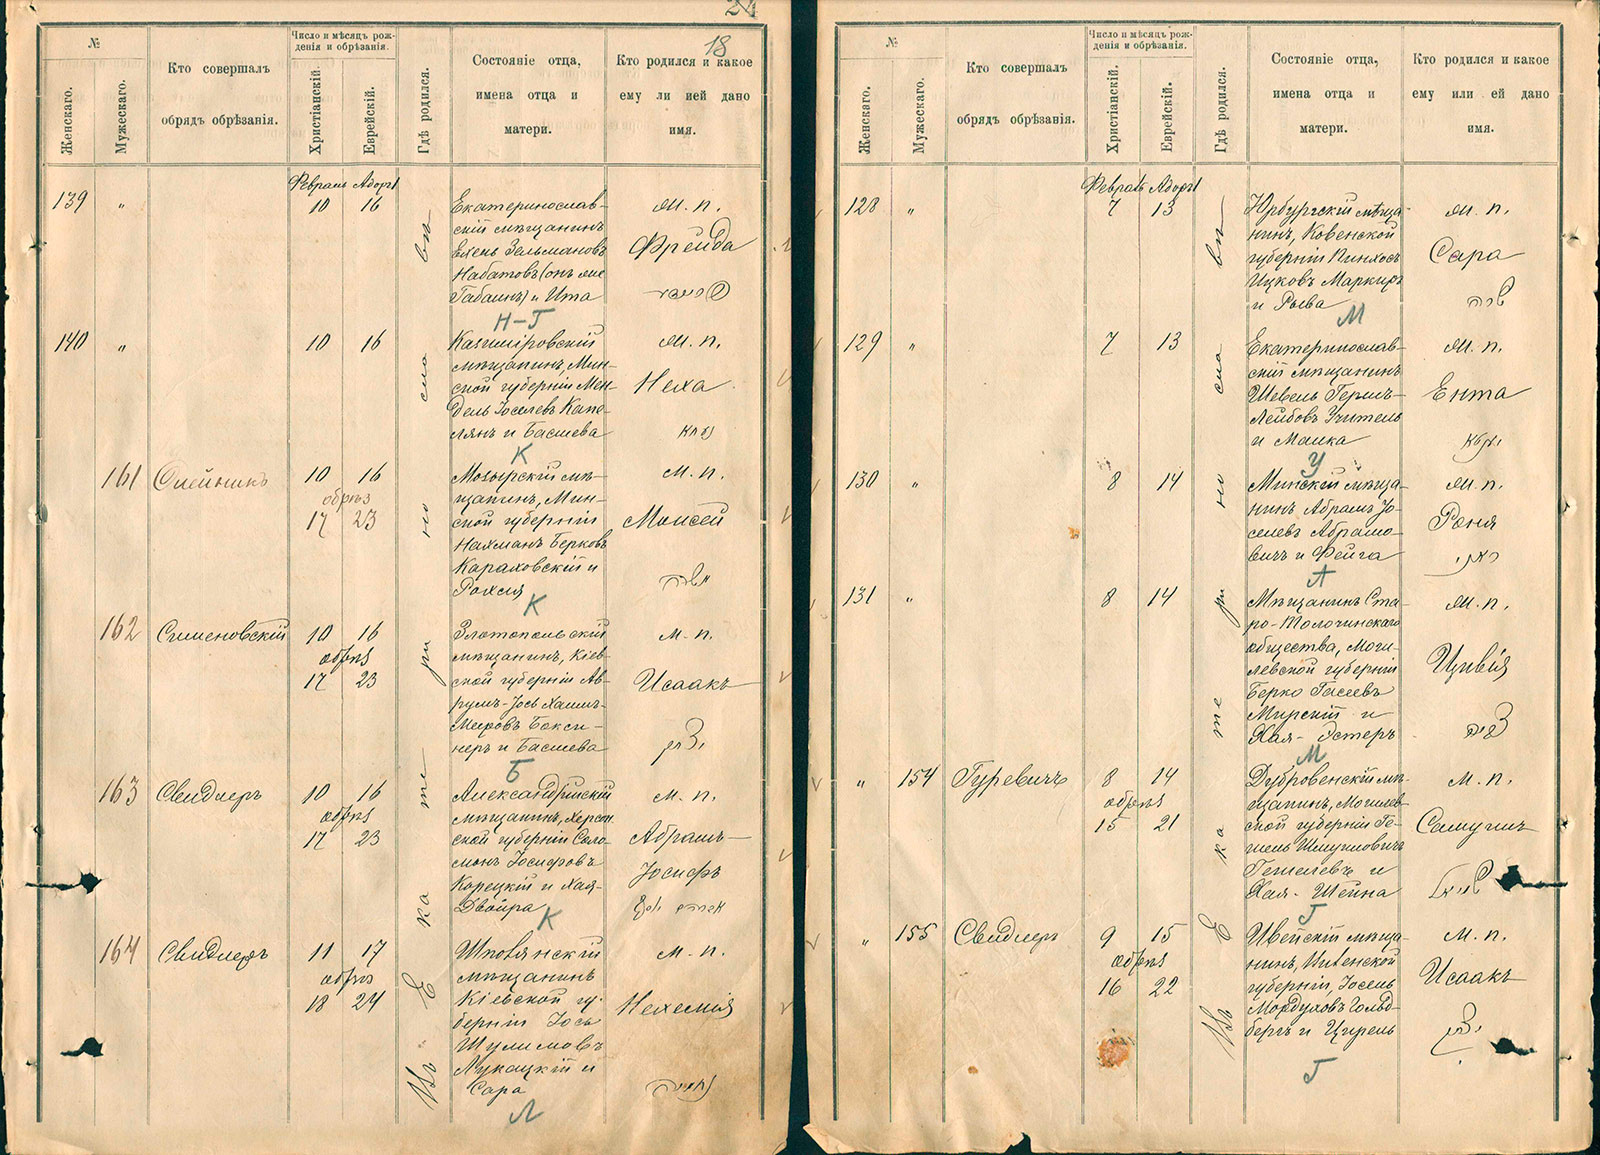 24
18
№
Женскаго.
Мужескаго.
Кто совершалъ
обрядъ обрѣзанія.
Число и мѣсяцъ рож-
денія и обрѣзанія.
Христіанскій.
Еврейскій.
Гдѣ родился.
Состояніе отца,
имена отца и
матери.
Кто родился и какое
ему ли ией дано
имя.
Февраль Адоръ 1
139 „ 10 16
Екатеринослав-
скій мѣщанинъ
Зельмановъ
Набатовъ (онъ же
и Ита
м. п.
Фрейда
Н-Г
140 „ 10 16
Казимировскій
мѣщанинъ, Мин-
ской губерніи Мен-
дель Іоселевъ Капе-
лянъ и Басшева
м. п.
Неха
נעכא
К
161 Олейникъ 10 16
обрѣз
17 23
Мозырскій мѣ-
щанинъ, Мин-
ской губерніи
Нахманъ Берковъ
Караховскій и
Рохля
м. п.
Моисей
משה
К
162 Сименовскій 10 16
обрѣз
17 23
Златопольскій
мѣщанинъ, Кіев-
ской губерніи Ав-
румъ-Іось Хаимъ-
Меировъ Бокси-
неръ и Басшева
м. п.
Исаакъ
יצחק
Б
163 Свидлеръ 10 16
обрѣз
17 23
Александрійскій
мѣщанинъ, Херсон-
ской губерніи Соло-
монъ Іосифовъ
Корецкій и Хая-
Двойра
м. п.
Абрамъ-
Іосифъ
אברהם יוסף
К
164 Свидлеръ 11 17
обрѣз
18 24
Шполянскій
мѣщанинъ
Кіевской гу-
берніи Іось
Шулимовъ
Лукацкій и
Сара
м. п.
Нехемія
נחמיה
Л
Въ Екатеринославѣ
№
Женскаго.
Мужескаго.
Кто совершалъ
обрядъ обрѣзанія.
Число и мѣсяцъ рож-
денія и обрѣзанія.
Христіанскій.
Еврейскій.
Гдѣ родился.
Состояніе отца,
имена отца и
матери.
Кто родился и какое
ему или ей дано
имя.
Февраль Адоръ 1
128 „ 7 13
Юрбургскій мѣща-
нинъ, Ковенской
губерніи Пинхосъ
Ицковъ Маркиръ
и Рыва
м. п.
Сара
שרה
М
129 „ 7 13
Екатеринослав-
скій мѣщанинъ
Шевель Герш-
Лейбовъ Учитель
и Малка
м. п.
Ента
יענטא
У
130 „ 8 14
Минскій мѣща-
нинъ Абрамъ Іо-
селевъ Абрамо-
вичъ и Фейга
м. п.
Роня
А
131 „ 8 14
Мѣщанинъ Ста-
ро-Толочинскаго
общества, Моги-
левской губерніи
Берко
Мирскій и
Хая-Эстеръ
м. п.
Цивія
צביה
М
„ 154 Гуревичъ 8 14
обрѣз
15 21
Дубровенскій мѣ-
щанинъ, Могилев-
ской губерніи Ге-
шель Шмуиловичъ
Гешелевъ и
Хая-Шейна
м. п.
Самуилъ
שמואל
Г
„ 155 Свидлеръ 9 15
обрѣз
16 22
Ивейскій мѣща-
нинъ, Виленской
губерніи, Іосель
Мордуховъ Гольд-
бергъ и Цирель
м. п.
Исаакъ
יצחק
Г
Въ Екатеринославѣ